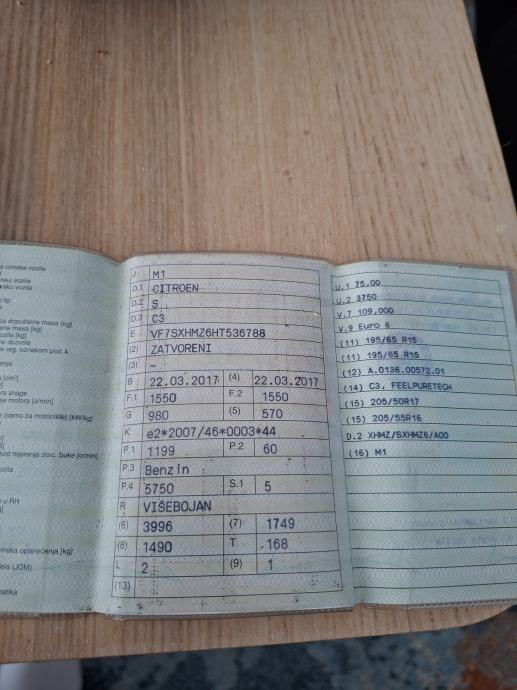 a oznaka vozila
vozila
tip
ca dopuštena masa [kg]
ena masa [kg]
ozila [kg]
a dozvole
e reg. oznakom pod A
enja
[cm³]
a snage
je motora [o/min]
(samo za motocikle) [kW/kg]
kod mjerenja stac. buke [o/min]
ozila
u RH
vinska opterećenja [kg]
ela (JOM)
matika
J M1
D.1 CITROEN
D.2 S
D.3 C3
E VF7SXHMZ6HT536788
(2) ZATVORENI
(3) –
B 22.03.2017 (4) 22.03.2017
F.1 1550 F.2 1550
G 980 (5) 570
K e2*2007/46*0003*44
P.1 1199 P.2 60
P.3 Benzin
P.4 5750 S.1 5
R VIŠEBOJAN
(6) 3996 (7) 1749
(8) 1490 T 168
L 2 (9) 1
(13)
U.1 75,00
U.2 3750
V.7 109,000
V.9 Euro 6
(11) 195/65 R15
(11) 195/65 R15
(12) A.0136.00572.01
(14) C3, FEELPURETECH
(15) 205/50R17
(15) 205/55R16
D.2 XHMZ/SXHMZ6/A00
(16) M1